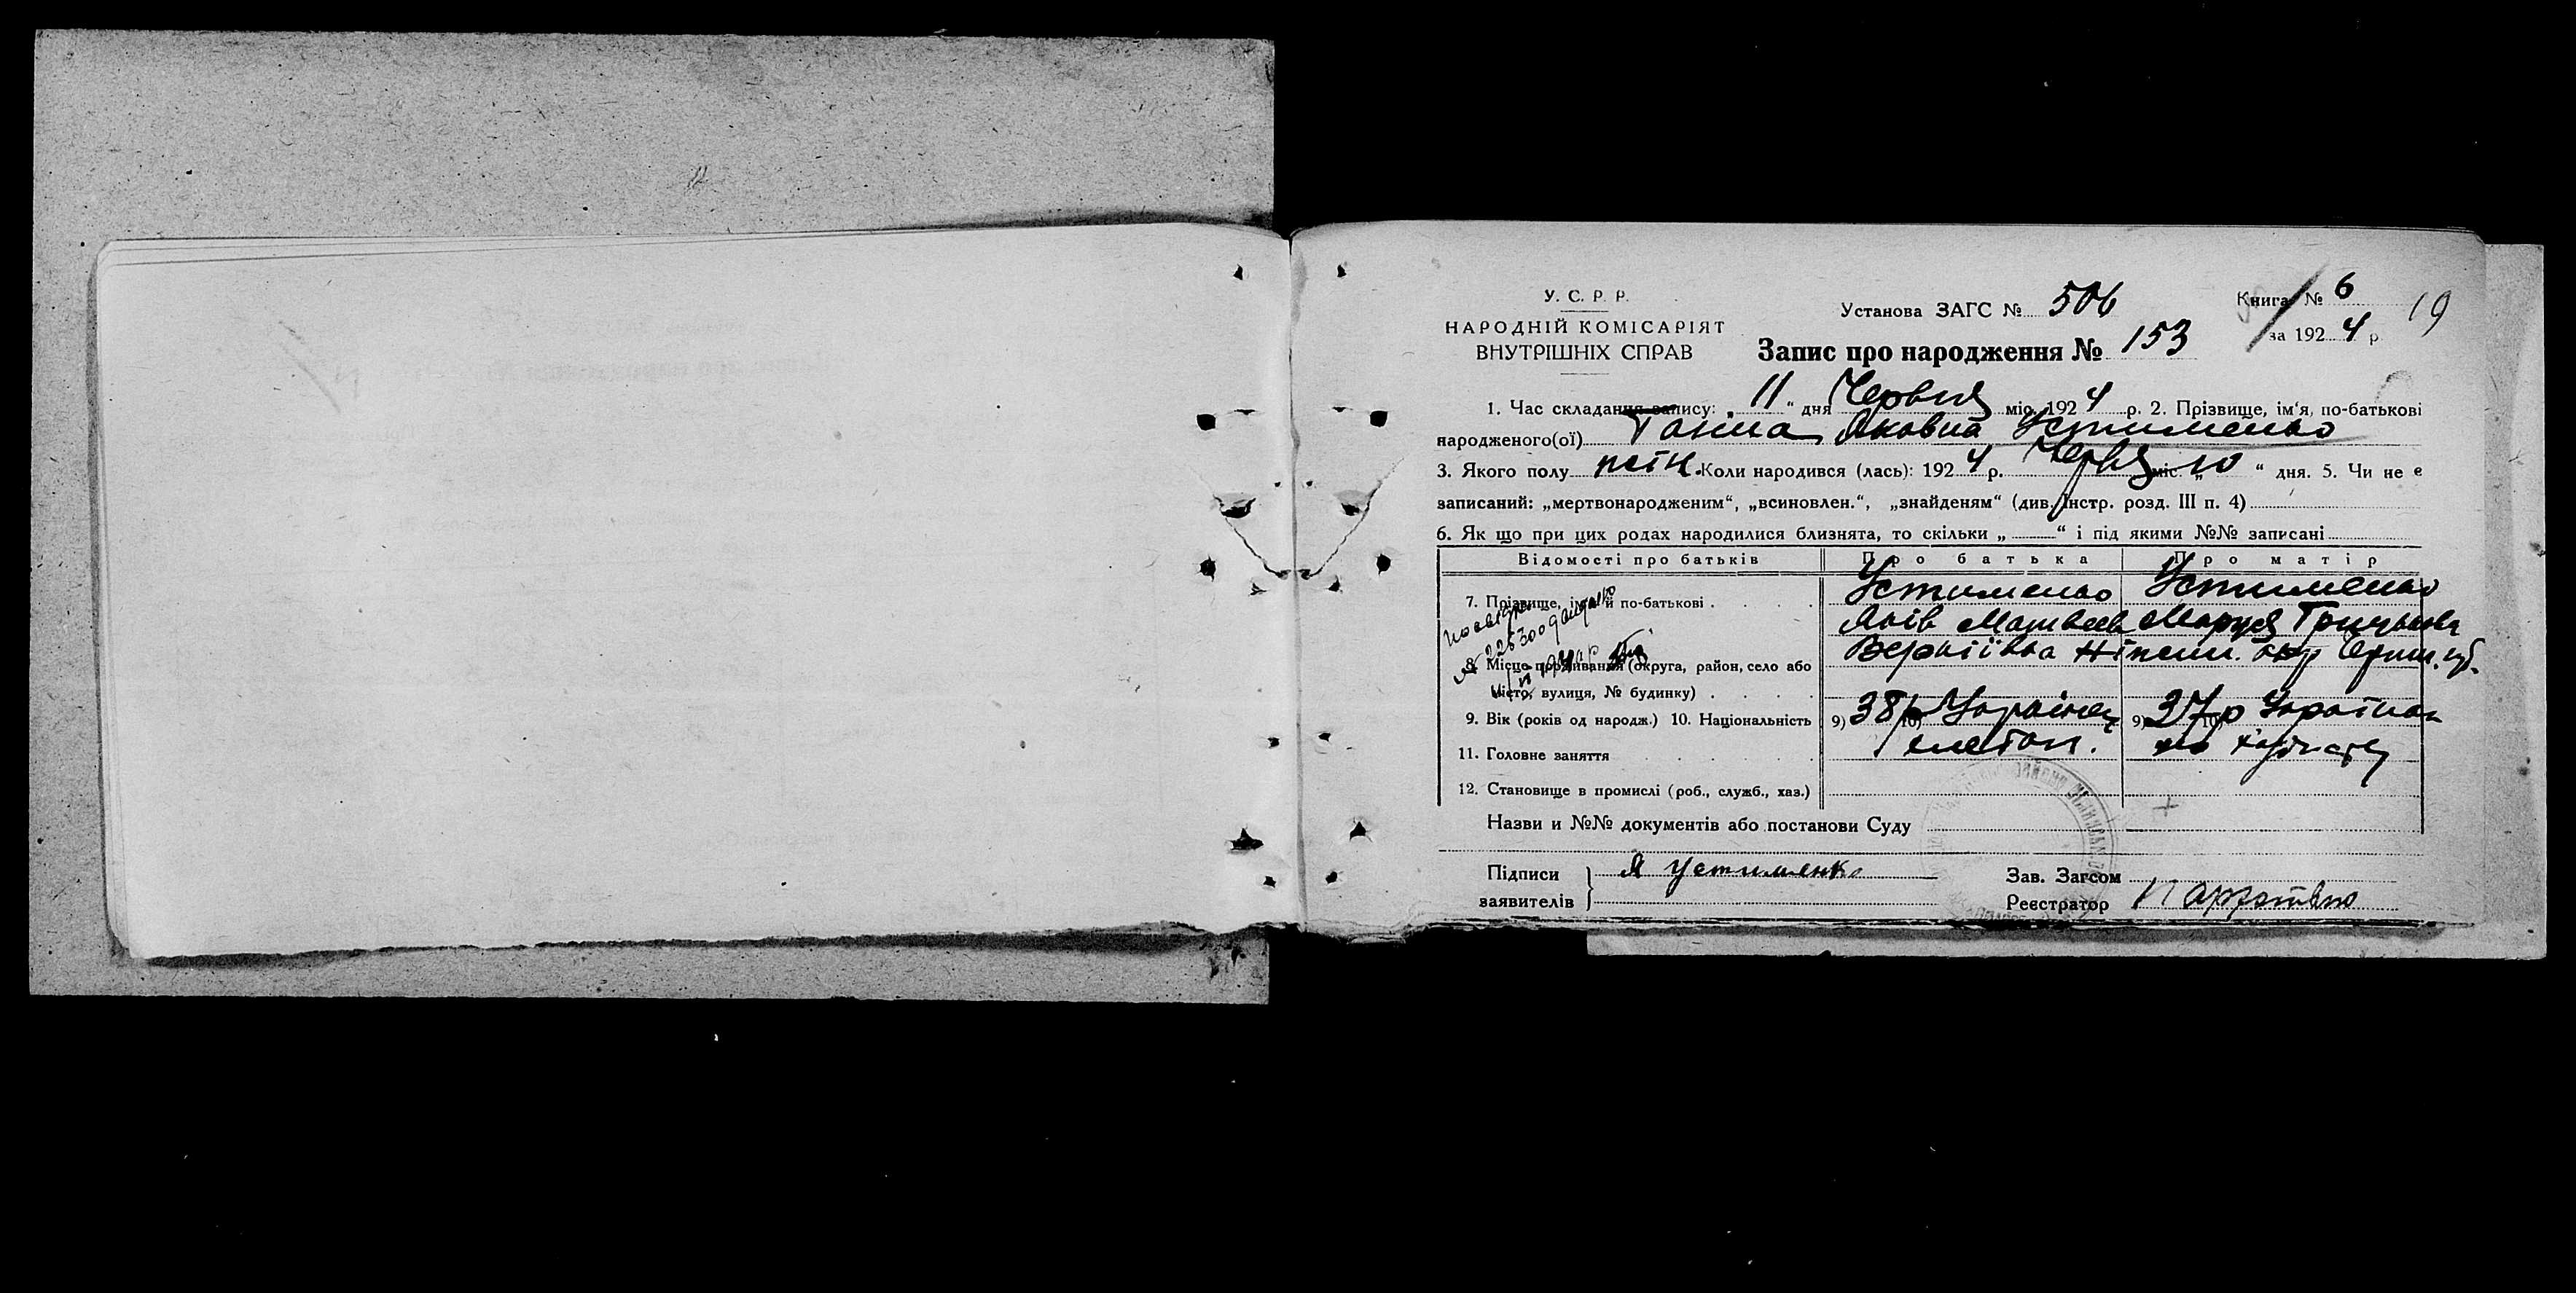 У. С. Р. Р.
НАРОДНІЙ КОМІСАРІЯТ
ВНУТРІШНІХ СПРАВ
Установа ЗАГС № 506
Книга № 6
19
за 1924 р.
Запис про народження № 153
1. Час складання запису: „ 11 “ дня Червня міс. 1924 р. 2. Прізвище, ім'я, по-батькові
народженого(ої) Ганна Яковна Устименко
3. Якого полу жін. Коли народився (лась): 1924 р. Червня міс. „ 10 “ дня. 5. Чи не є
записаний: „мертвонародженим“, „всиновлен.“, „знайденям“ (див. Інстр. розд. III п. 4)
6. Як що при цих родах народилися близнята, то скільки „ “ і під якими №№ записані
Відомості про батьків Про батька Про матір
7. Прізвище, ім'я й по-батькові Устименко Устименко
Яків Матвіев Маруся Грицькова
8. Місце проживання (округа, район, село або
місто, вулиця, № будинку) Вергіївка Ніжин. окр Черниг. губ.
9. Вік (років од народж.) 10. Національність 9) 38р 10) Українец 9) 37р 10) Українка
11. Головне заняття
12. Становище в промислі (роб., служб., хаз.)
Назви и №№ документів або постанови Суду
Підписи
заявителів
Я Устименко
Зав. Загсом
Реєстратор